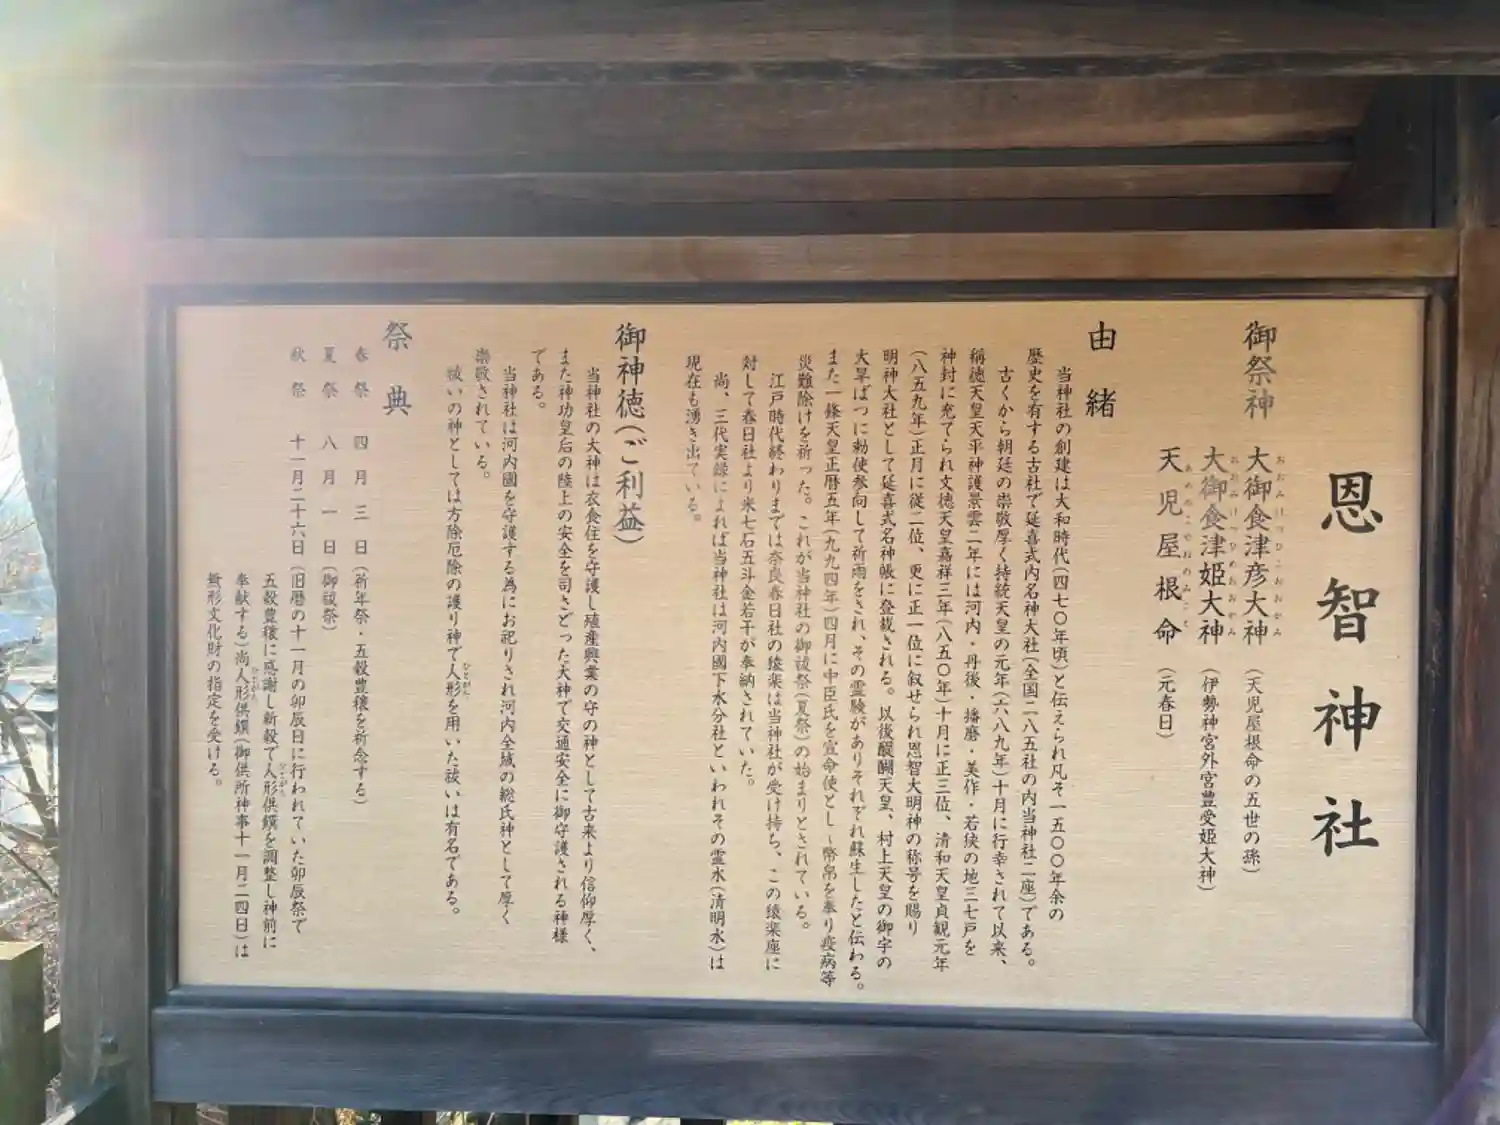 恩智神社
御祭神
大御食津彦大神（天児屋根命の五世の孫）
おおみけつひこおおかみ
大御食津姫大神（伊勢神宮外宮豊受姫大神）
おおみけつひめおおかみ
天児屋根命（元春日）
あめのこやねのみこと
由緒
当神社の創建は大和時代（四七〇年頃）と伝えられ凡そ一五〇〇年余の
歴史を有する古社で延喜式内名神大社（全国二八五社の内当神社二座）である。
古くから朝廷の崇敬厚く持統天皇の元年（六八九年）十月に行幸されて以来、
稱徳天皇天平神護景雲二年には河内・丹後・播磨・美作・若狭の地三七戸を
神封に充てられ文徳天皇嘉祥三年（八五〇年）十月に正三位、清和天皇貞観元年
（八五九年）正月に従二位、更に正一位に叙せられ恩智大明神の称号を賜り
明神大社として延喜式名神帳に登載される。以後醍醐天皇、村上天皇の御宇の
大旱ばつに勅使参向して祈雨をされ、その霊験がありそれぞれ蘇生したと伝わる。
また一條天皇正暦五年（九九四年）四月に中臣氏を宣命使とし、幣帛を奉り疫病等
災難除けを祈った。これが当神社の御祓祭（夏祭）の始まりとされている。
江戸時代終わりまでは奈良春日社の猿楽は当神社が受け持ち、この猿楽座に
対して春日社より米七石五斗金若干が奉納されていた。
尚、三代実録によれば当神社は河内國下水分社といわれその霊水（清明水）は
現在も湧き出ている。
御神徳（ご利益）
当神社の大神は衣食住を守護し殖産興業の守の神として古来より信仰厚く、
また神功皇后の陸上の安全を司さどった大神で交通安全に御守護される神様
である。
当神社は河内國を守護する為にお祀りされ河内全域の総氏神として厚く
崇敬されている。
祓いの神としては方除厄除の護り神で人形を用いた祓いは有名である。
ひとがた
祭典
春祭 四月三日（祈年祭・五穀豊穣を祈念する）
夏祭 八月一日（御祓祭）
秋祭 十一月二十六日（旧暦の十一月の卯辰日に行われていた卯辰祭で
五穀豊穣に感謝し新穀で人形供饌を調整し神前に
ひとがた
奉献する）尚人形供饌（御供所神事十一月二四日）は
ひとがた
無形文化財の指定を受ける。